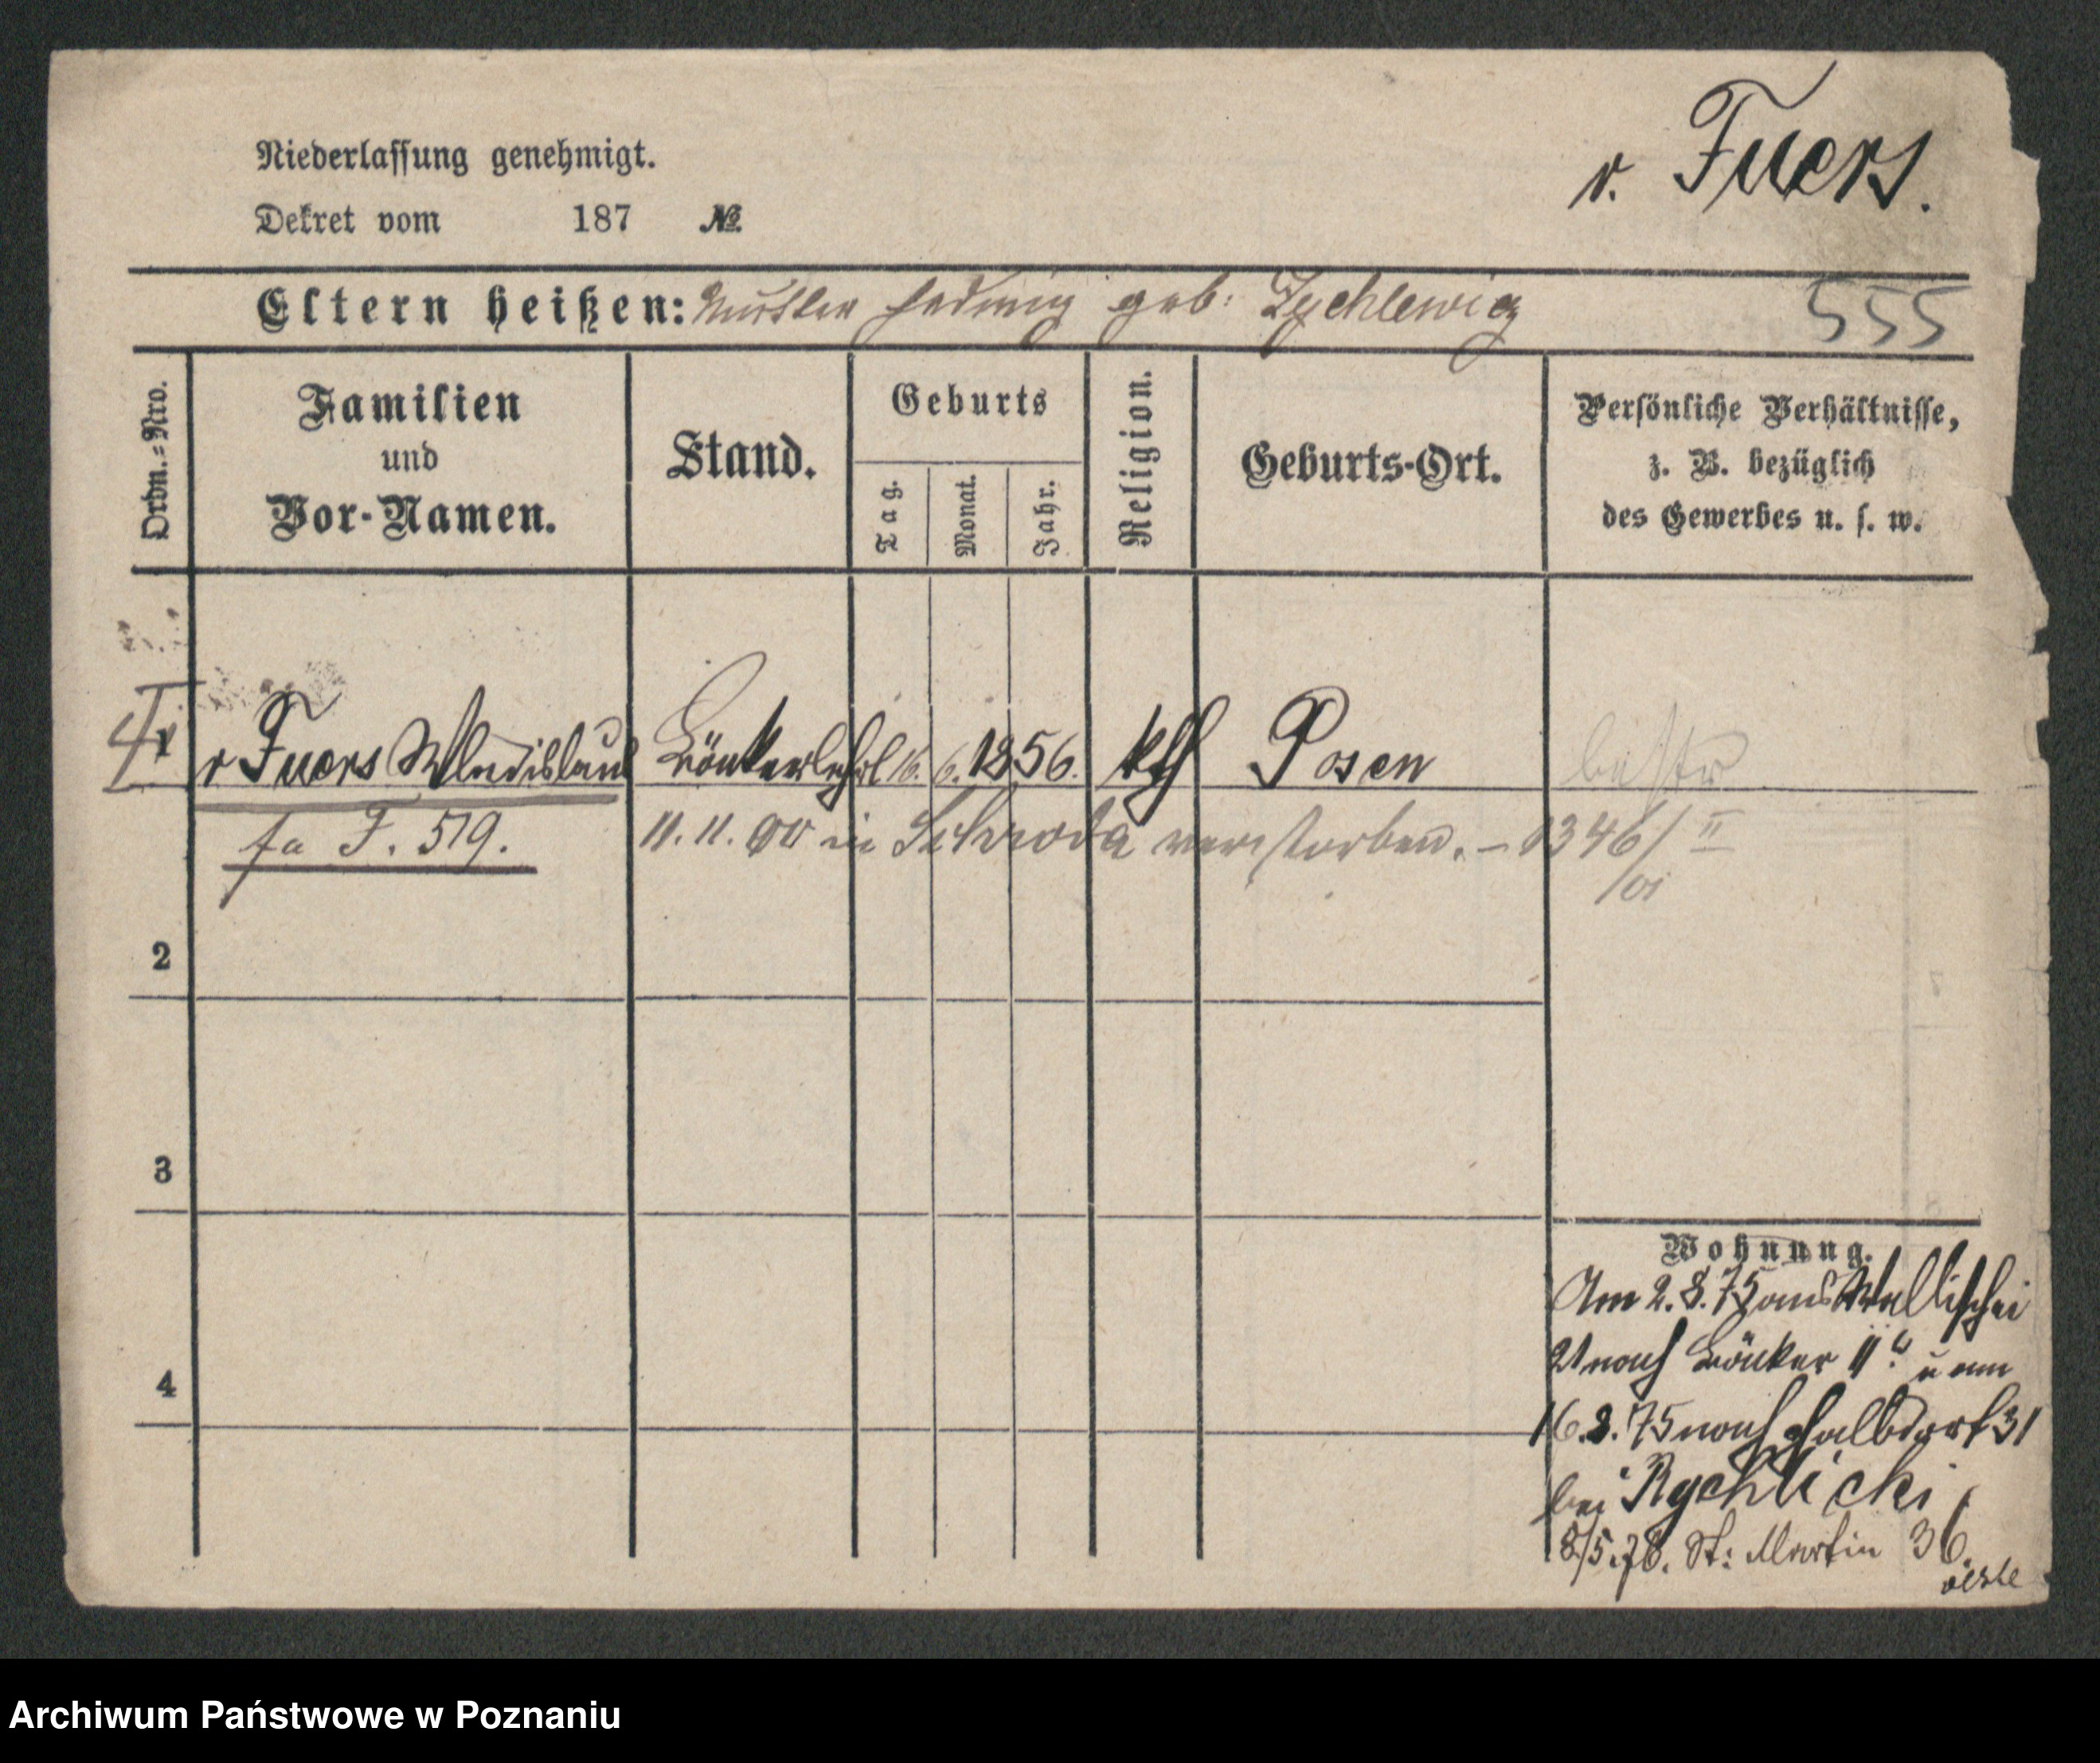 Niederlassung genehmigt.
Dekret vom 187 No.
v. Fuers.
Eltern heißen: Mutter Hedwig geb: Zychlewicz
555
Ordn.-Nro.
Familien und Vor-Namen.
Stand.
Geburts
Tag.
Monat.
Jahr.
Religion.
Geburts-Ort.
Persönliche Verhältnisse,
z. B. bezüglich
des Gewerbes u. s. w.
v Fuers Wladislaus Bäckerlehrl 16. 6. 1856. kth Posen
fa F. 519. 11. 11. 00 in Schroda verstorben. - 1346/II
01
2
3
4
Wohnung.
Am 2.8.75 aus Wallischei
21 nach Bäcker 11 u am
16.8.75 nach Halbdorf 31
bei Rychlicki
8/5.78. St: Martin 36
Archiwum Państwowe w Poznaniu